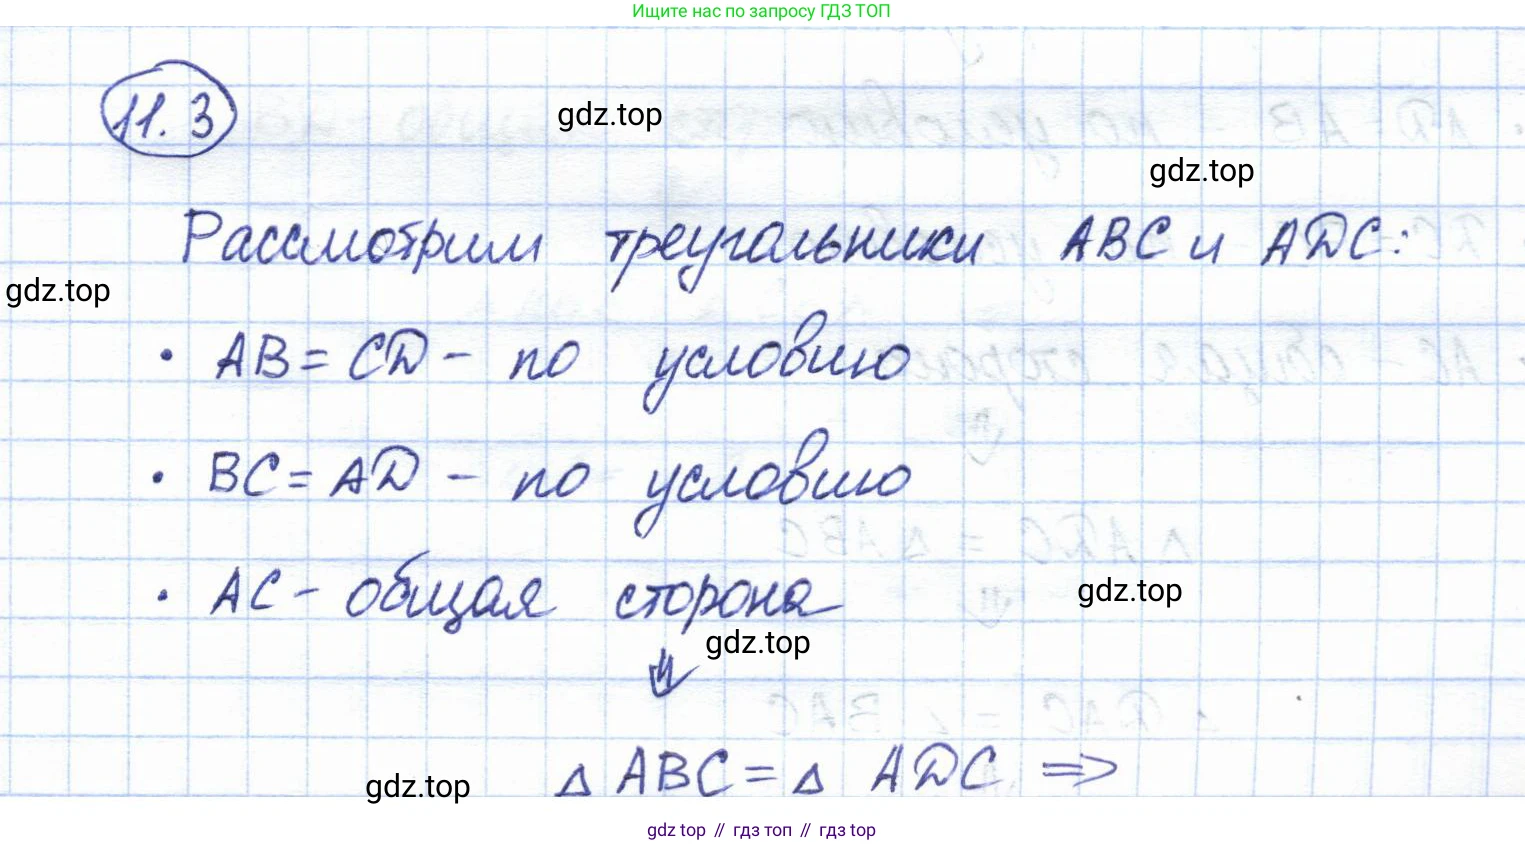 Ищите нас по запросу ГДЗ ТОП
11.3
gdz.top
gdz.top
Рассмотрим треугальники ABC и ADC:
gdz.top
• AB = CD - по условию
• BC = AD - по условию
• AC - общая сторона
gdz.top
gdz.top
⇓
△ ABC = △ ADC ⇒
gdz.top
gdz top // гдз топ // гдз top